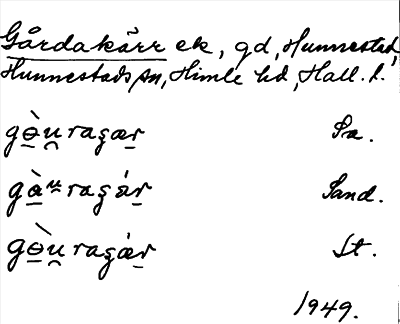 Gårdakärr ek, gd, Hunnestad,
Hunnestads sn, Himle hd, Hall. l.
gɵ̀u̯raʂær Pa.
gàᵘraʂár Sand.
gɵ̀u̯raʂár St.
1949.